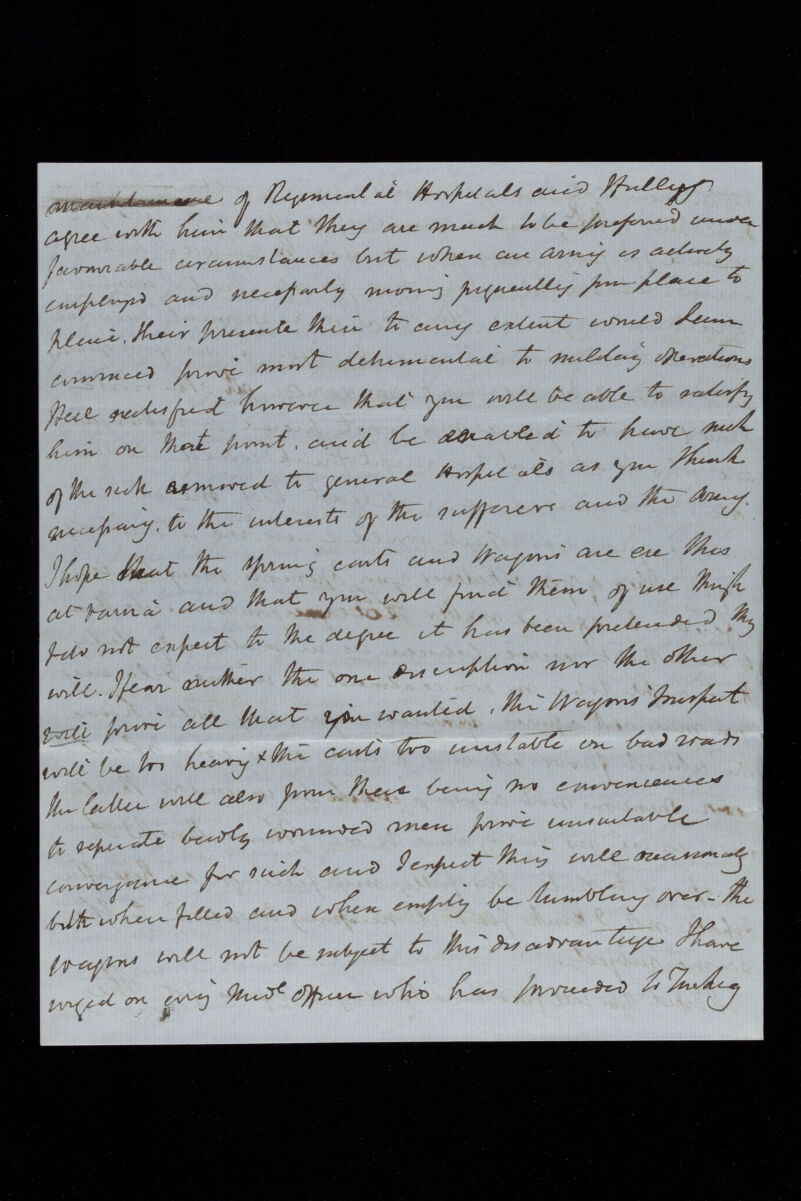 maintainance of Regimental Hospitals and I fully
agree with him that they are much to be preferred under
favourable circumstances but when an army is actively
employed and necessarily moving frequently from place to
place, their presence then to any extent would I am
convinced prove most detrimental to military operations
I feel satisfied however that you will be able to satisfy
him on that point. and be enabled to have such
of the sick removed to general Hospitals as you think
necessary. to the interests of the sufferers and the Army.
I hope that the spring carts and Wagons are ere this
at Varna and that you will find them of use though
I do not expect to the degree it has been pretended they
will. I fear neither the one description nor the other
will prove all that you wanted, the Wagons I suspect
will be too heavy & the carts too unstable on bad roads
the latter will also from there being no conveniences
to separate badly wounded men prove unsuitable
conveyance for such and I expect they will occasionally
both when filled and when empty be tumbling over - the
Wagons will not be subject to this disadvantage I have
urged on every Medl Officer who has proceeded to Turkey